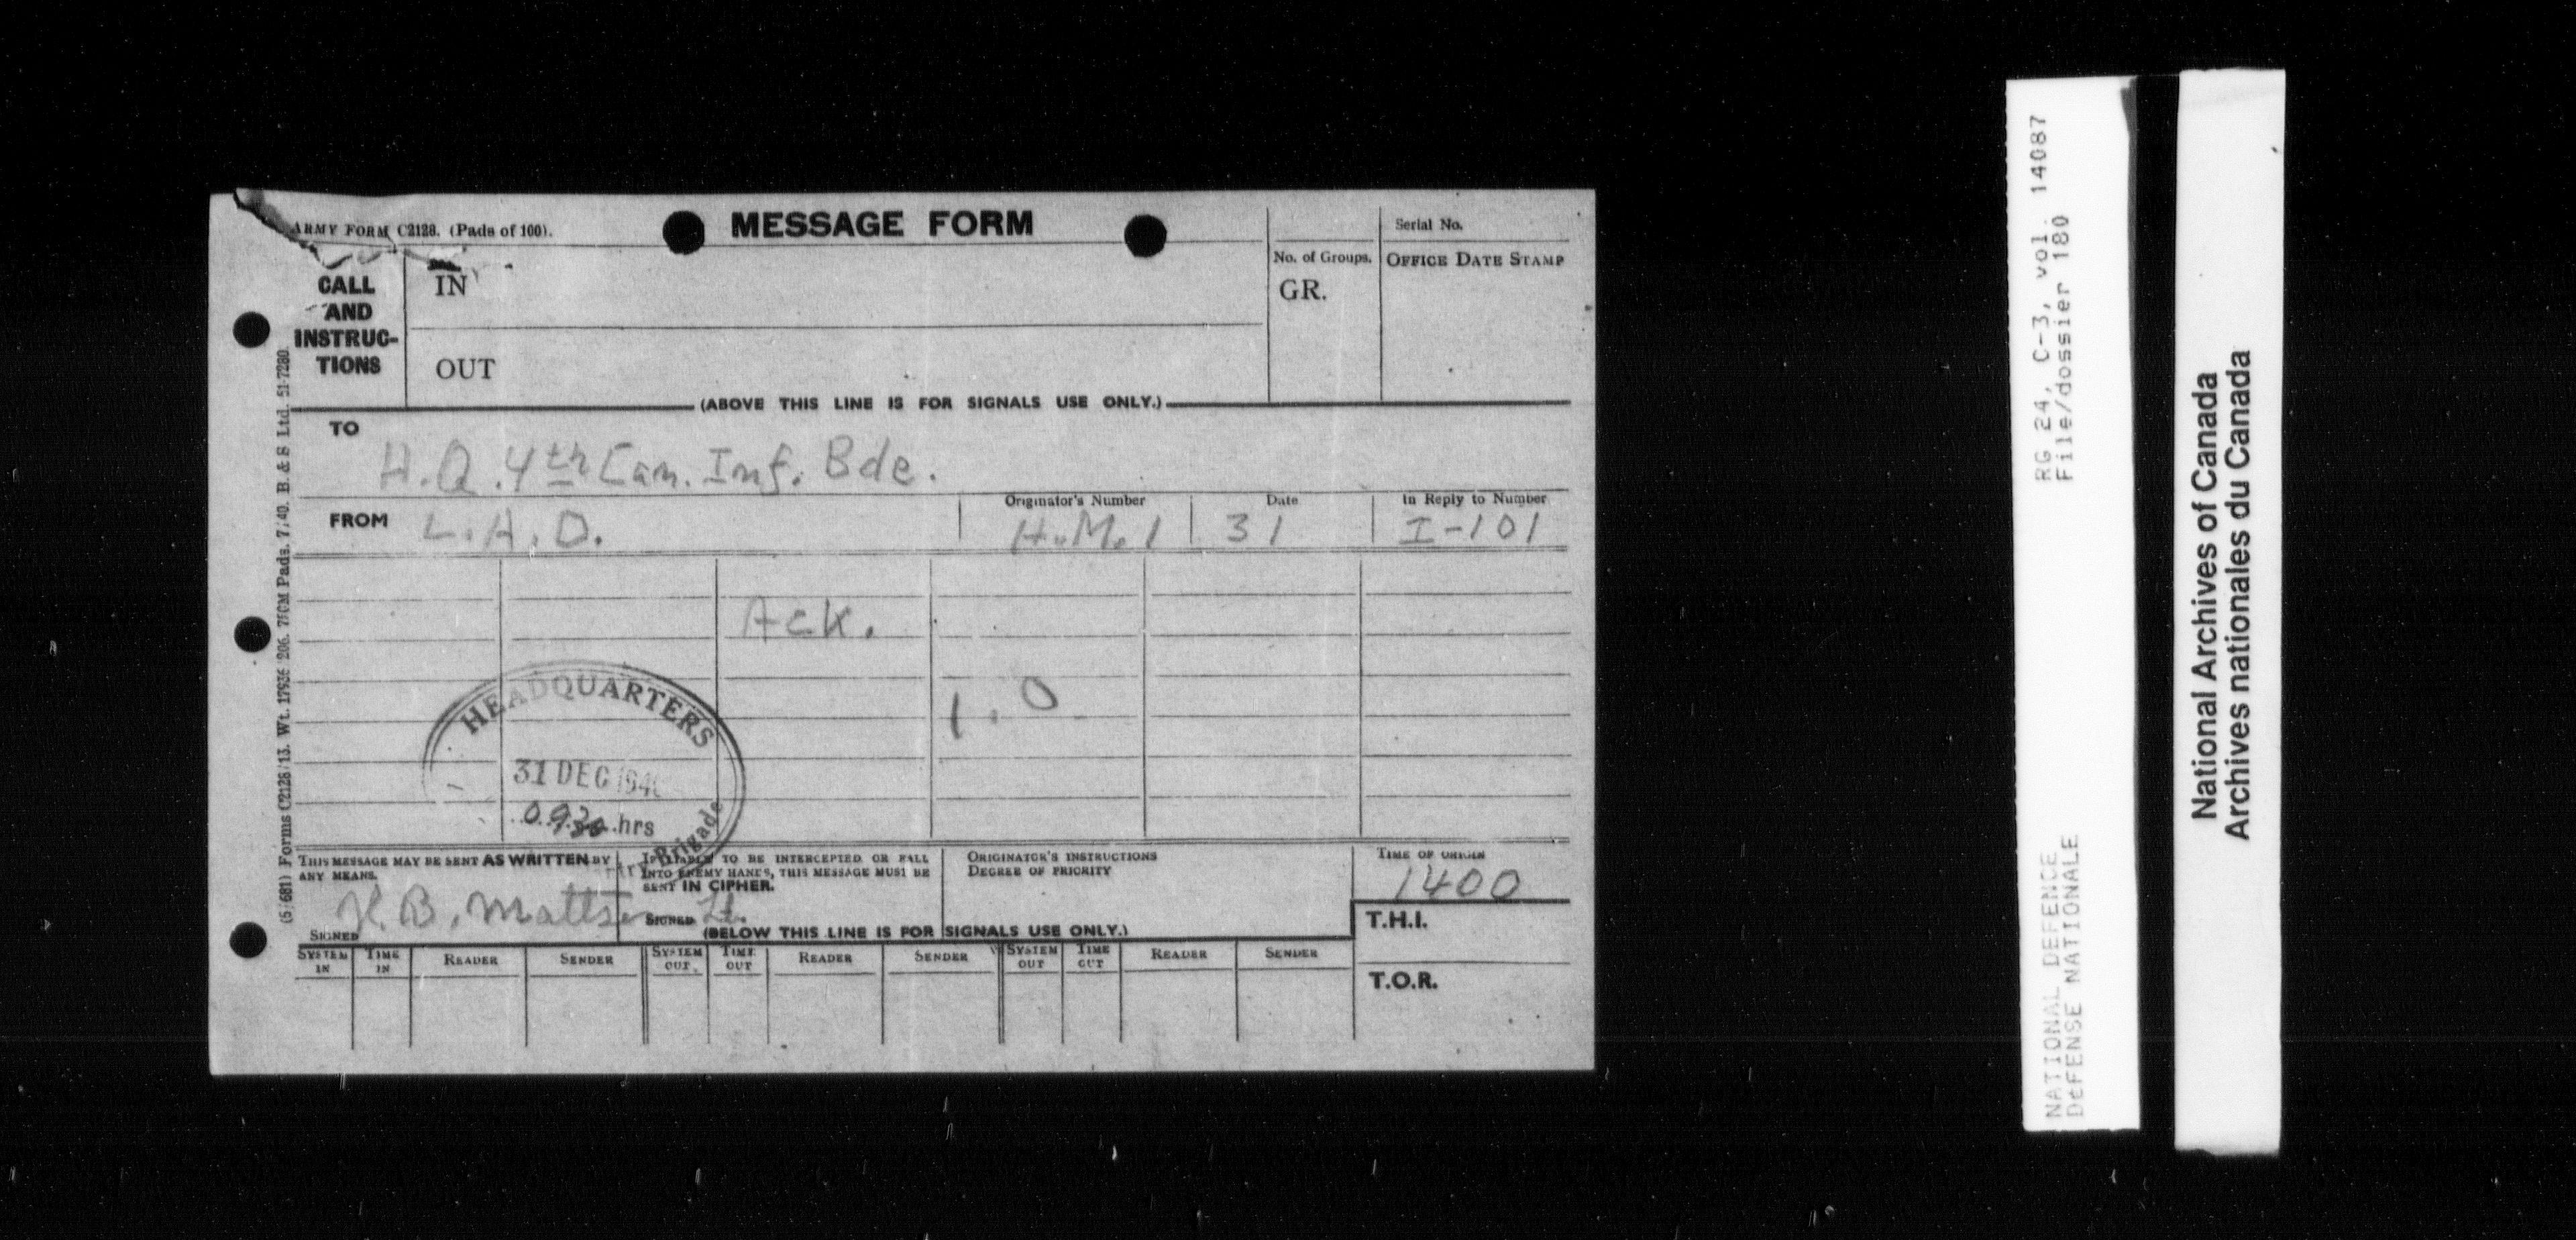 ARMY FORM C2128. (Pads of 100).
MESSAGE FORM
Serial No.
No. of Groups.
GR.
OFFICE DATE STAMP
CALL AND INSTRUC-TIONS
IN
OUT
(ABOVE THIS LINE IS FOR SIGNALS USE ONLY.)
TO
H.Q. 4th Can. Inf. Bde.
FROM
L.A.D.
Originator's Number
H.M.1
Date
31
In Reply to Number
I-101
Ack.
1.0
HEADQUARTERS
31 DEC 194
0930 hrs
Brigade
THIS MESSAGE MAY BE SENT AS WRITTEN BY
ANY MEANS.
K.B. Mattsen Lt.
SIGNED
IF LIABLE TO BE INTERCEPTED OR FALL
INTO ENEMY HANDS, THIS MESSAGE MUST BE
SENT IN CIPHER.
SIGNED
ORIGINATOR'S INSTRUCTIONS
DEGREE OF PRIORITY
TIME OF ORIGIN
1400
T.H.I.
T.O.R.
(BELOW THIS LINE IS FOR SIGNALS USE ONLY.)
SYSTEM IN
TIME IN
READER
SENDER
SYSTEM OUT
TIME OUT
READER
SENDER
SYSTEM OUT
TIME OUT
READER
SENDER
(5/681) Forms C2128/13. Wt. 17936 206. 750M Pads. 7/40. B. & S Ltd. 51-7280
RG 24, C-3, vol. 14087
File/dossier 180
NATIONAL DEFENCE
DéFENSE NATIONALE
National Archives of Canada
Archives nationales du Canada